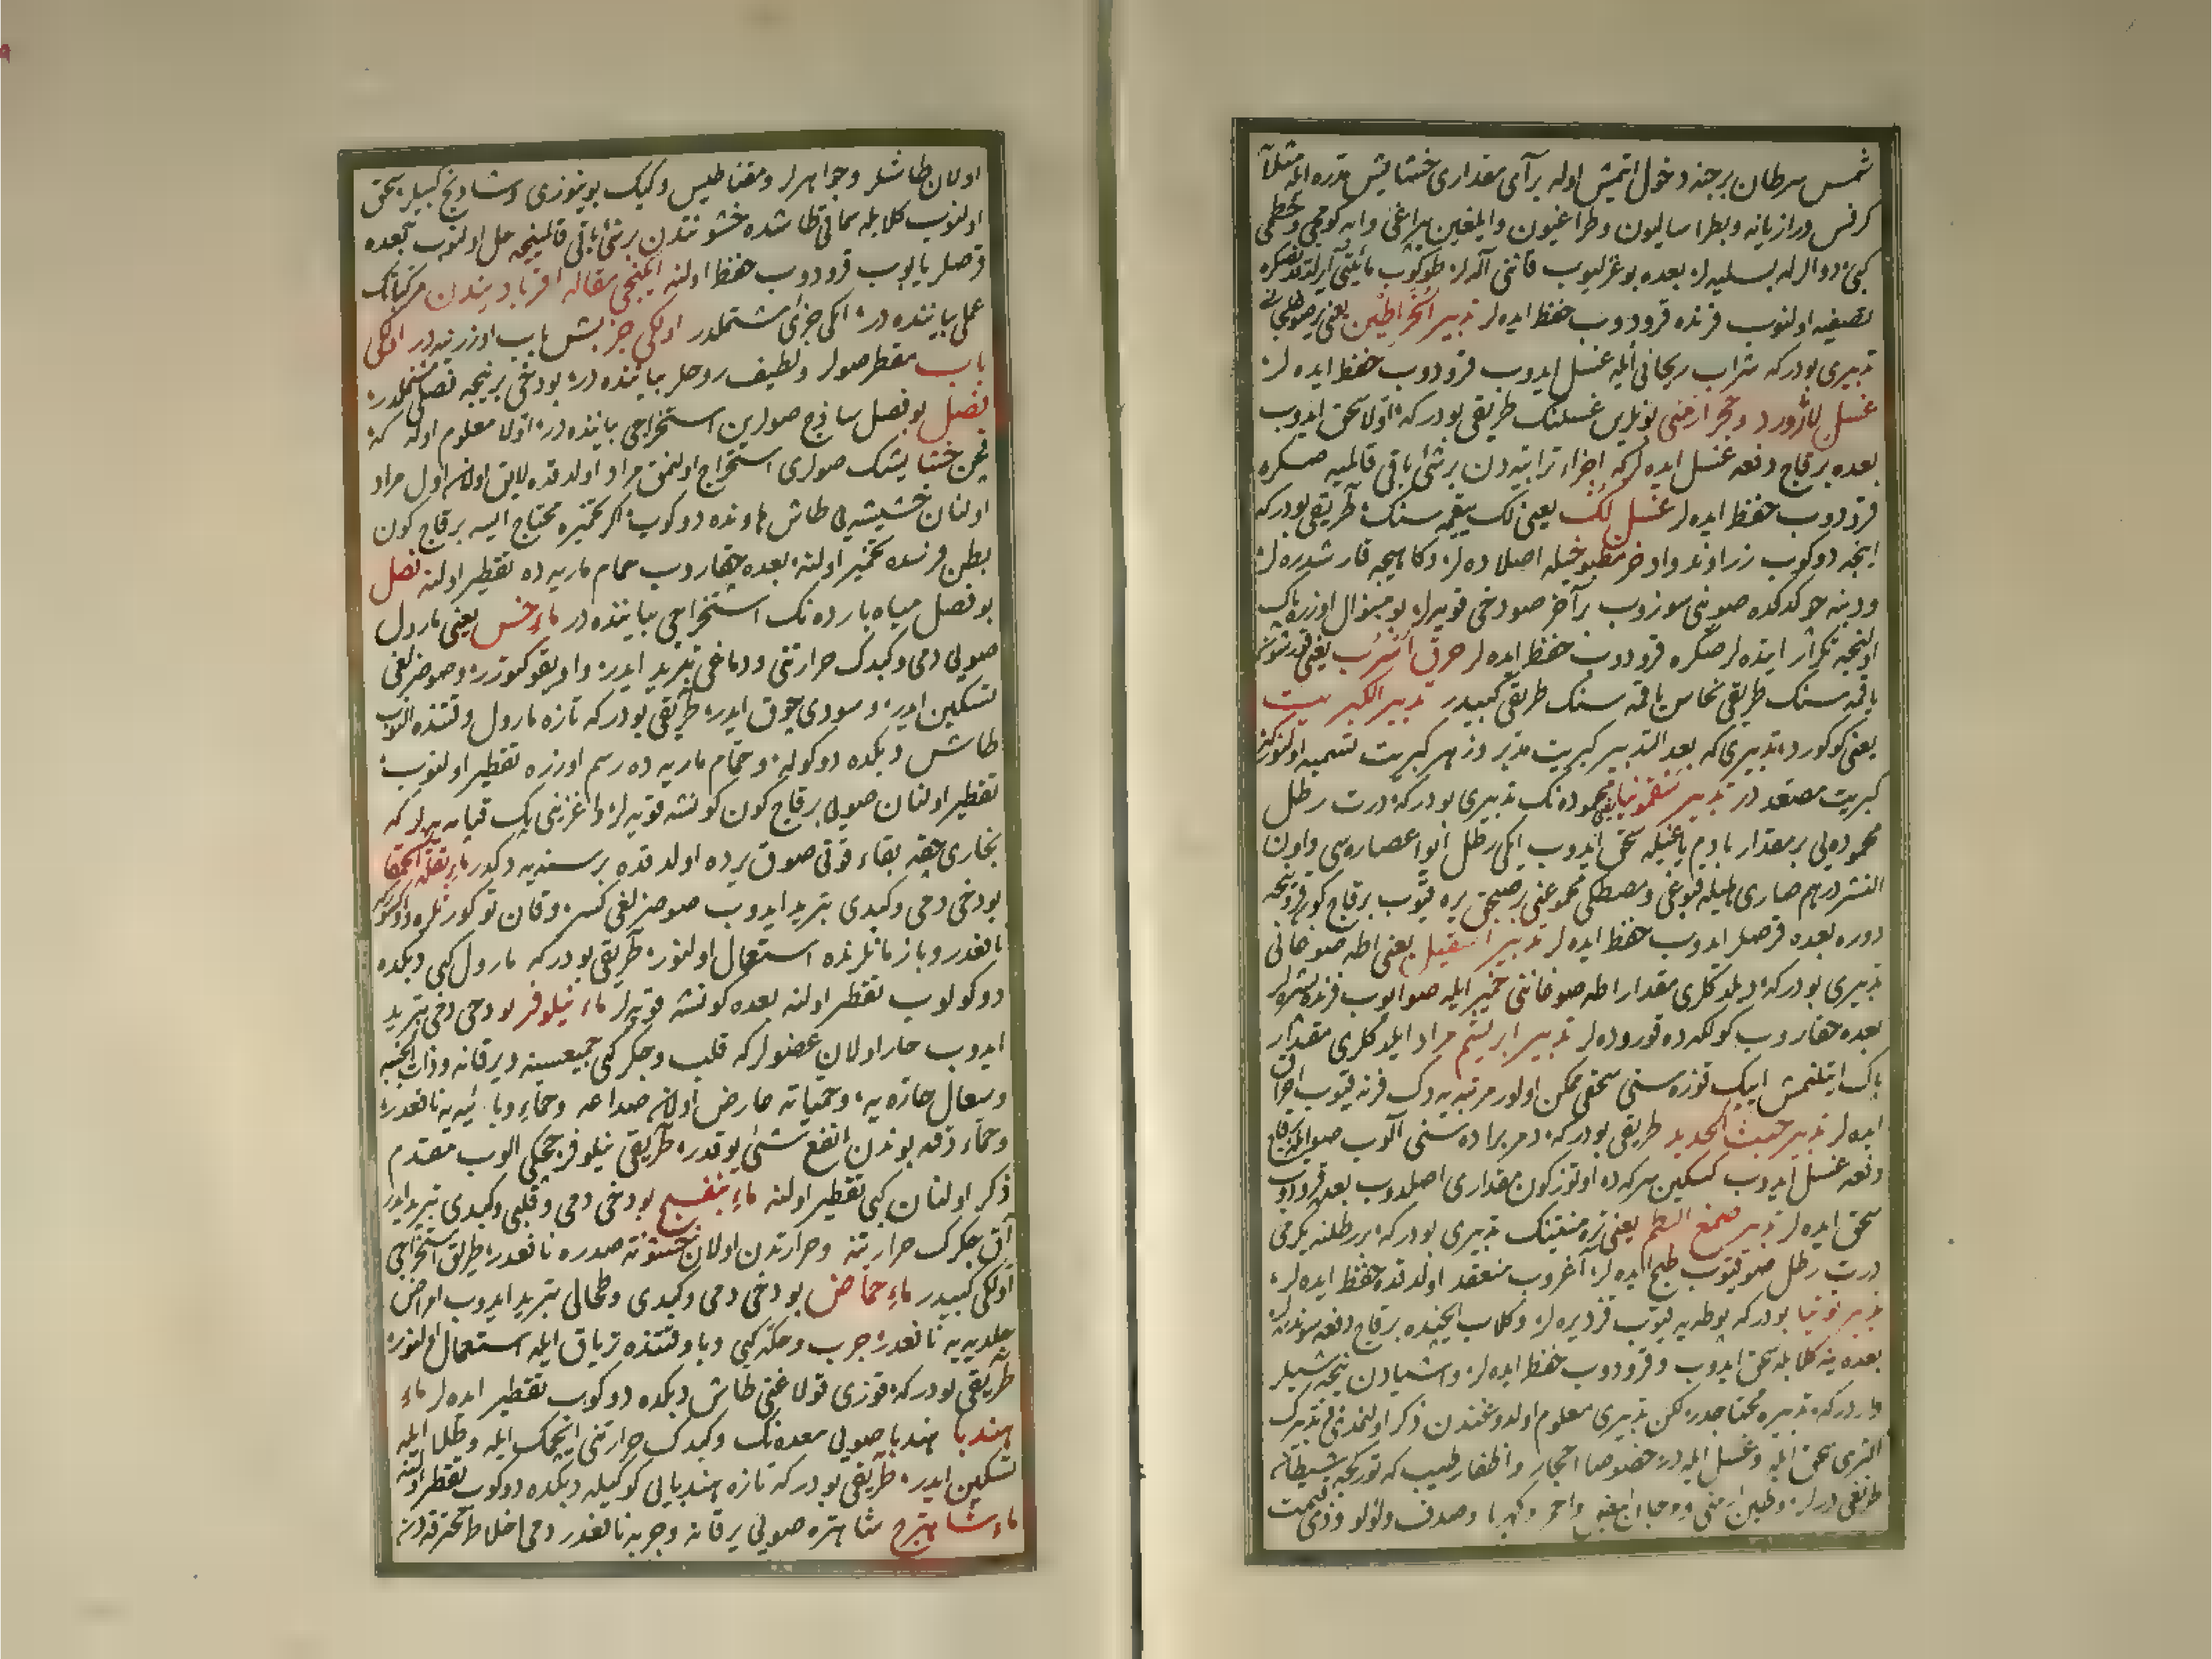 شمس سرطان برجنه دخول ایتمش اوله بر آی مقداری خشخاش قدره ایله مثلا
کرفس ورازیانه وبطراسالیون وطراغیون والمغین یپراغی وابه کومجی وخطمی
کبی دوالرله بسلیه لر بعده بوغزلیوب قاننی آله لر
تصفیه اولنوب فرنده قرودوب حفظ ایده لر تدبیر الخراطین یعنی یر صولجانی
تدبیری بودرکه شراب ریحانی ایله غسل ایدوب قرودوب حفظ ایده لر
غسل لاژورد وحجر ارمنی بونلرین غسلنک طریقی بودرکه اولا سحق ایدوب
بعده برقاج دفعه غسل ایده لرکه اجزاء ترابیه دن برشئ باقی قالمیه صکره
قرودوب حفظ ایده لر غسل لک یعنی لک یقمه سنک طریقی بودرکه
اینجه دوکوب زراوند واذخر مطبوخیله اصلاده لر وکاهیجه قارشدیره لر
ودبنه چوکدکده صوینی سوزوب بر آخر صو دخی قویه لر بو منوال اوزره پاک
اولنجه تکرار ایده لر صکره قرودوب حفظ ایده لر حرق اسرب یعنی قورشون
یاقمه سنک طریقی نحاس یاقمه سنک طریقی کبیدر تدبیر الکبریت
یعنی کوکورد تدبیری که بعد التدبیر کبریت مدبر وزهر کبریت تسمیه اولنور
کبریت مصعد در تدبیر سقمونیا محموده نک تدبیری بودرکه درت رطل
محموده یی بر مقدار بادم یاغیله سحق ایدوب ایکی رطل ایوا عصاره سی واون
التشر درهم صاری هلیله قبوغی ومصطکی
دوره بعده قرصلر ایدوب حفظ ایده لر تدبیر اسقیل یعنی اطه صوغانی
تدبیری بودرکه دیلدکلری مقدار اطه صوغاننی خمیر ایله صوایوب فرنده
بعده چقاروب کولکه ده قوروده لر تدبیر ابریشم مراد ایلدکلری مقدار
پاک ایتلنمش ایپک توزه سنی سحقی ممکن اولور مرتبه یه دک فرنه قیوب احراق
ایده لر تدبیر خبث الحدید طریقی بودرکه دمر براده سنی آلوب صو ایله برقاج
دفعه غسل ایدوب کسکین سرکه ده اوتوز کون مقداری اصلدوب بعده قرودوب
سحق ایده لر تدبیر صمغ البطم یعنی ترمنتینک تدبیری بودرکه بر رطلنه یکرمی
درت رطل صو قیوب طبخ ایده لر آغروب منعقد اولدقده حفظ ایده لر
تدبیر توتیا بودرکه بوطه یه قیوب قزدیره لر وکلاب ایچنده برقاج دفعه سوندره لر
بعده ینه کلابله سحق ایدوب وقرودوب حفظ ایده لر واشیادن نیجه شیلر
واردرکه تدبیره محتاجدر لکن تدبیری معلوم اولدوغندن ذکر اولنمدی
اکثری سحق ایله وغسل ایله در خصوصا احجار واظفار طیب که
طرنقی درلر وطین ارمنی وکهربا وصدف ولؤلؤ وذی قیمت
اولان طاشلر وجواهرلر ومقناطیس وکییک بوینوزی وشادنج کبیلر سحق
اولنوب کلابله سماقی طاشده خشونتدن برشئ باقی قالمینجه حل اولنوب بعده
قرصلر یاپوب قرودوب حفظ اولنه ایکنجی مقاله اقرابادیندن مرکباتک
عملی بیاننده در ایکی جزئی مشتملدر اولکی جز بش باب اوزرینه در اولکی
باب مقطر صولر ولطیف روحلر بیاننده در بو دخی برنیجه فصلی مشتملدر
فصل بو فصل ساذج صولرین استخراجی بیاننده در اولا معلوم اوله که
قچن حشایشک صولری استخراج اولنمق مراد اولدقده لایق اولان اول مراد
اولنان حشیشه یی طاش هاونده دوکوب اکر تخمیره محتاج ایسه برقاج کون
بطن فرسده تخمیر اولنه بعده چقاروب حمام ماریه ده تقطیر اولنه فصل
بو فصل میاه بارده نک استخراجی بیاننده در ماء خس یعنی مارول
صویی دمی وکبدک حرارتنی ودماغی تبرید ایدر واویقو کتورر وصوصزلغی
تسکین ایدر وسودی چوق ایدر طریقی بودرکه تازه مارول وقتنده آلنوب
طاش دیبکده دوکوله وحمام ماریه ده رسم اوزره تقطیر اولنوب
تقطیر اولنان صویی برقاج کون کونشه قویه لر واغزینی پک قپامیه لر که
بخاری چقه بقاء قوتی صوق یرده اولدقده بر سنه یه دکدر ماء بقلة الحمقا
بو دخی دمی وکبدی تبرید ایدوب صوصزلغی کسر وقان توکورنلره
نافعدر وباز مانلرنده استعمال اولنور طریقی بودرکه مارول کبی دیبکده
دوکولوب تقطیر اولنه بعده کونشه قویه لر ماء نیلوفر بو دخی دمی تبرید
ایدوب حار اولان عضولر که قلب وجکر کبی جمیعسینه ویرقانه وذات الجنبه
وسعال حاره یه وحمیاته عارض اولان صداعه وحماء وبائیه یه نافعدر
وحماء دقه بوندن انفع شئ یوقدر طریقی نیلوفر چیچکی الوب مقدم
ذکر اولنان کبی تقطیر اولنه ماء بنفسج بو دخی دمی وقلبی وکبدی تبرید ایدر
آق جکرک حرارتنه وحرارتدن اولان خشونة صدره نافعدر طریق استخراجی
اولکی کبیدر ماء حماض بو دخی دمی وکبدی وطحالی تبرید ایدوب امراض
جلدیه یه نافعدر جرب وحکه کبی وبا وقتنده تریاق ایله استعمال اولنور
طریقی بودرکه قوزی قولاغنی طاش دیبکده دوکوب تقطیر ایده لر ماء
هندبا هندبا صویی معده نک وکبدک حرارتنی ایچمک ایله وطلا ایله
تسکین ایدر طریقی بودرکه تازه هندبایی کوکیله دیبکده دوکوب تقطیر اولنه
ماء شاهترج شاهتره صویی یرقانه وجربه نافعدر دمی اخلاط محترقه دن